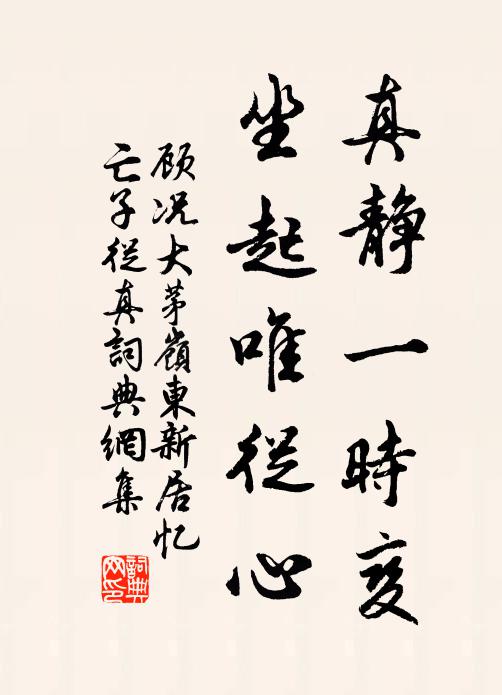 真静一時变
坐起唯從心
顾况大茅嶺東新居忆
亡子從真詞典網集
詞典
网印